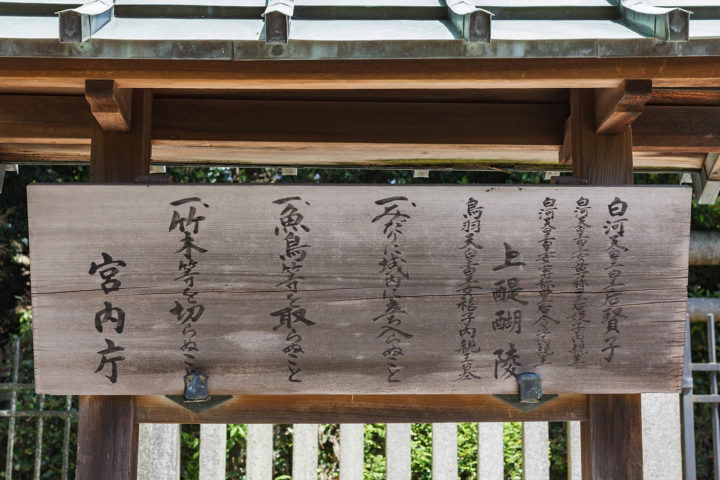 白河天皇皇后賢子
白河天皇皇女尊称皇后媞子内親王
白河天皇皇女尊称皇后令子内親王
上醍醐陵
鳥羽天皇皇女禧子内親王墓
一、みだりに域内に立ち入らぬこと
一、魚鳥等を取らぬこと
一、竹木等を切らぬこと
宮内庁